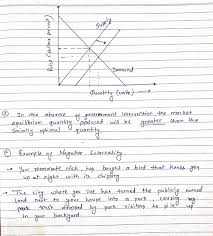 Supply
Price (dollars per unit)
Demand
Quantity (units)
In the absence of government intervention the market
equilibrium quantity produced will be greater than the
socially optimal quantity
Example of Negative Externality
Your roommate Nick, has bought a bird that keeps you
up at night with its chirping
The city where you live has turned the publicly owned
land next to your house into a park, causing
trash by park visitors to pile up
in your backyard